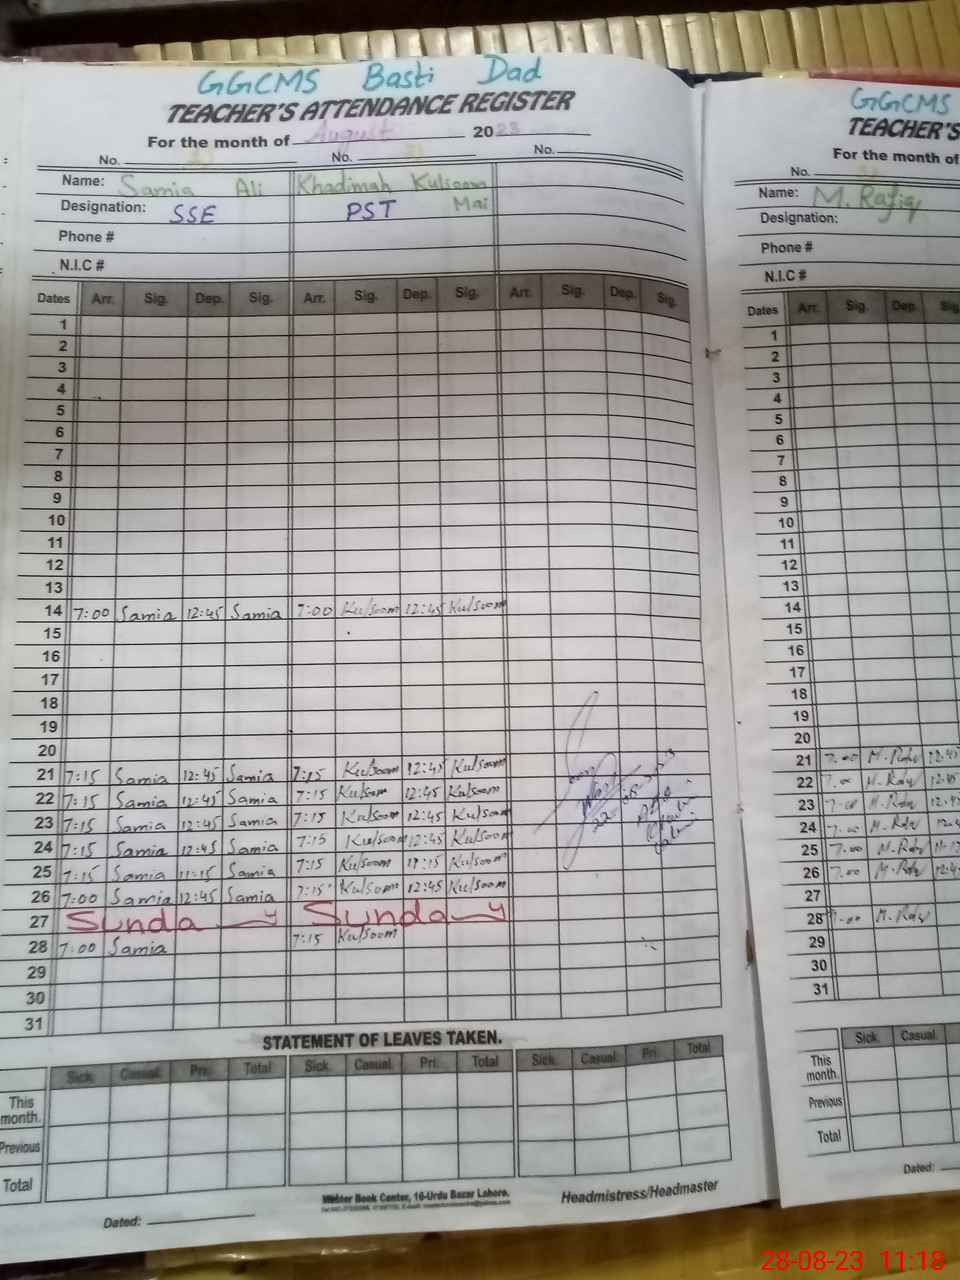 GGCMS Basti Dad
TEACHER'S ATTENDANCE REGISTER
For the month of August 2023
No. No. No.
Name: Samia Ali Khadimah Kulsoom
Designation: SSE PST Mai
Phone #
N.I.C #
Dates Arr. Sig. Dep. Sig. Arr. Sig. Dep. Sig. Arr. Sig. Dep. Sig.
1
2
3
4
5
6
7
8
9
10
11
12
13
14 7:00 Samia 12:45 Samia 7:00 Kulsoom 12:45 Kulsoom
15
16
17
18
19
20
21 7:15 Samia 12:45 Samia 7:15 Kulsoom 12:45 Kulsoom
22 7:15 Samia 12:45 Samia 7:15 Kulsoom 12:45 Kulsoom
23 7:15 Samia 12:45 Samia 7:15 Kulsoom 12:45 Kulsoom
24 7:15 Samia 12:45 Samia 7:15 Kulsoom 12:45 Kulsoom
25 7:15 Samia 11:15 Samia 7:15 Kulsoom 11:15 Kulsoom
26 7:00 Samia 12:45 Samia 7:15 Kulsoom 12:45 Kulsoom
27 Sunday Sunday
28 7:00 Samia 7:15 Kulsoom
29
30
31
STATEMENT OF LEAVES TAKEN.
Sick. Casual. Pri. Total Sick. Casual. Pri. Total Sick. Casual. Pri. Total
This month.
Previous
Total
Mister Book Center, 16-Urdu Bazar Lahore.
Dated: Headmistress/Headmaster
GGCMS
TEACHER'S
For the month of
No.
Name: M. Rafiq
Designation:
Phone #
N.I.C #
Dates Arr. Sig. Dep. Sig
1
2
3
4
5
6
7
8
9
10
11
12
13
14
15
16
17
18
19
20
21 7:00 12:45
22 7:00 12:45
23 7:00
24 7:00
25 7:00
26 7:00
27
28 7:00
29
30
31
Sick. Casual.
This month.
Previous
Total
Dated:
28-08-23 11:18